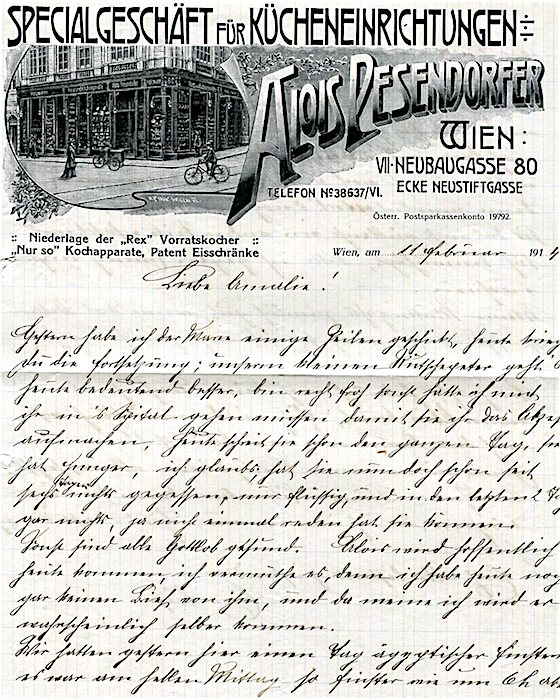 SPECIALGESCHÄFT FÜR KÜCHENEINRICHTUNGEN
ALOIS PESENDORFER
WIEN:
VII. NEUBAUGASSE 80
ECKE NEUSTIFTGASSE
TELEFON No 38637/VI.
Österr. Postsparkassenkonto 19792.
:: Niederlage der „Rex" Vorratskocher ::
„Nur so" Kochapparate, Patent Eisschränke
Wien, am 11 Februar 1914
Liebe Amalie!
Gestern habe ich der Marie einige Zeilen geschickt, heute
Du die Fortsetzung; unserem kleinen Rutschepeter geht's
heute bedeutend besser, bin recht froh sonst hätte ich mit
ihr in's Spital gehen müssen damit sie ihr das
aufmachen. Heute schreit sie schon den ganzen Tag, sie
hat Hunger, ich glaubs, hat sie nun doch schon seit
sechs Tagen nichts gegessen, nur flüssig, und in den letzten 2
gar nichts, ja nicht einmal reden hat sie können.
Sonst sind alle Gottlob gesund. Alois wird hoffentlich
heute kommen, ich vermuthe es, denn ich habe heute
gar keinen Brief von ihm, und da meine ich wird er
wahrscheinlich selber kommen.
Wir hatten gestern hier einen Tag ägyptischer
es war am hellen Mittag so finster wie um 6h